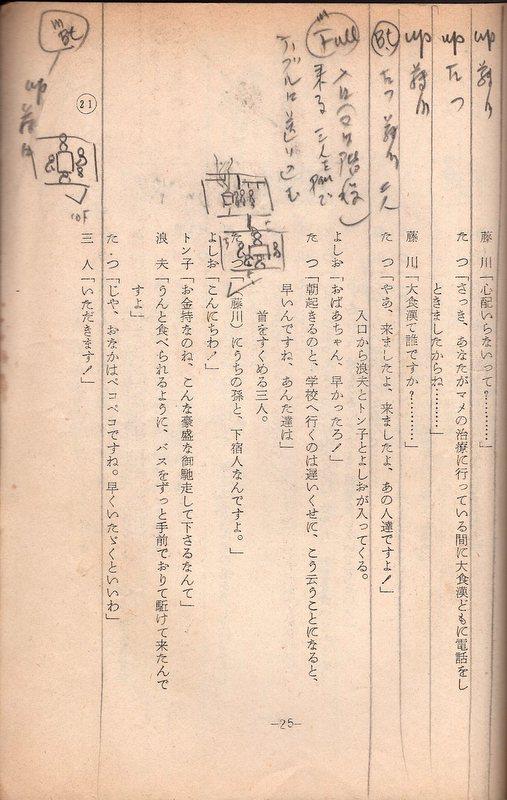 up
藤川「心配いらないって？………」
up たつ
たつ「さっき、あなたがマメの治療に行っている間に大食漢どもに電話をし
ときましたからね………」
up
藤川「大食漢て誰ですか？………」
Bt
たつ「やあ、来ましたよ、来ましたよ、あの人達ですよ！」
Full
入口から浪夫とトン子とよしおが入ってくる。
よしお「おばあちゃん、早かったろ！」
たつ「朝起きるのと、学校へ行くのは遅いくせに、こう云うことになると、
早いんですね、あんた達は」
首をすくめる三人。
（藤川）にうちの孫と、下宿人なんですよ。」
よしお「こんにちわ！」
トン子「お金持なのね、こんな豪盛な御馳走して下さるなんて」
浪夫「うんと食べられるように、バスをずっと手前でおりて駈けて来たんで
すよ」
た・つ「じゃ、おなかはペコペコですね。早くいたゞくといいわ」
三人「いただきます！」
21
Bt
up
—25—